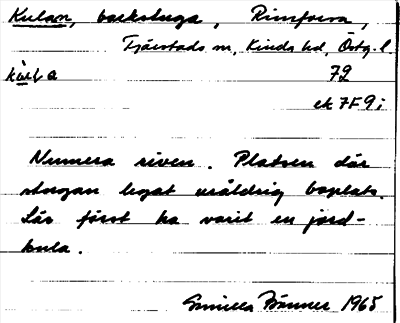 Kulan, backstuga, Rimforsa,
Tjärstads sn, Kinda hd, Östg. l
72
ek 7F9i
Numera riven. Platsen där
stugan legat uråldrig boplats.
Lär först ha varit en jord-
kula.
Gunilla 1965